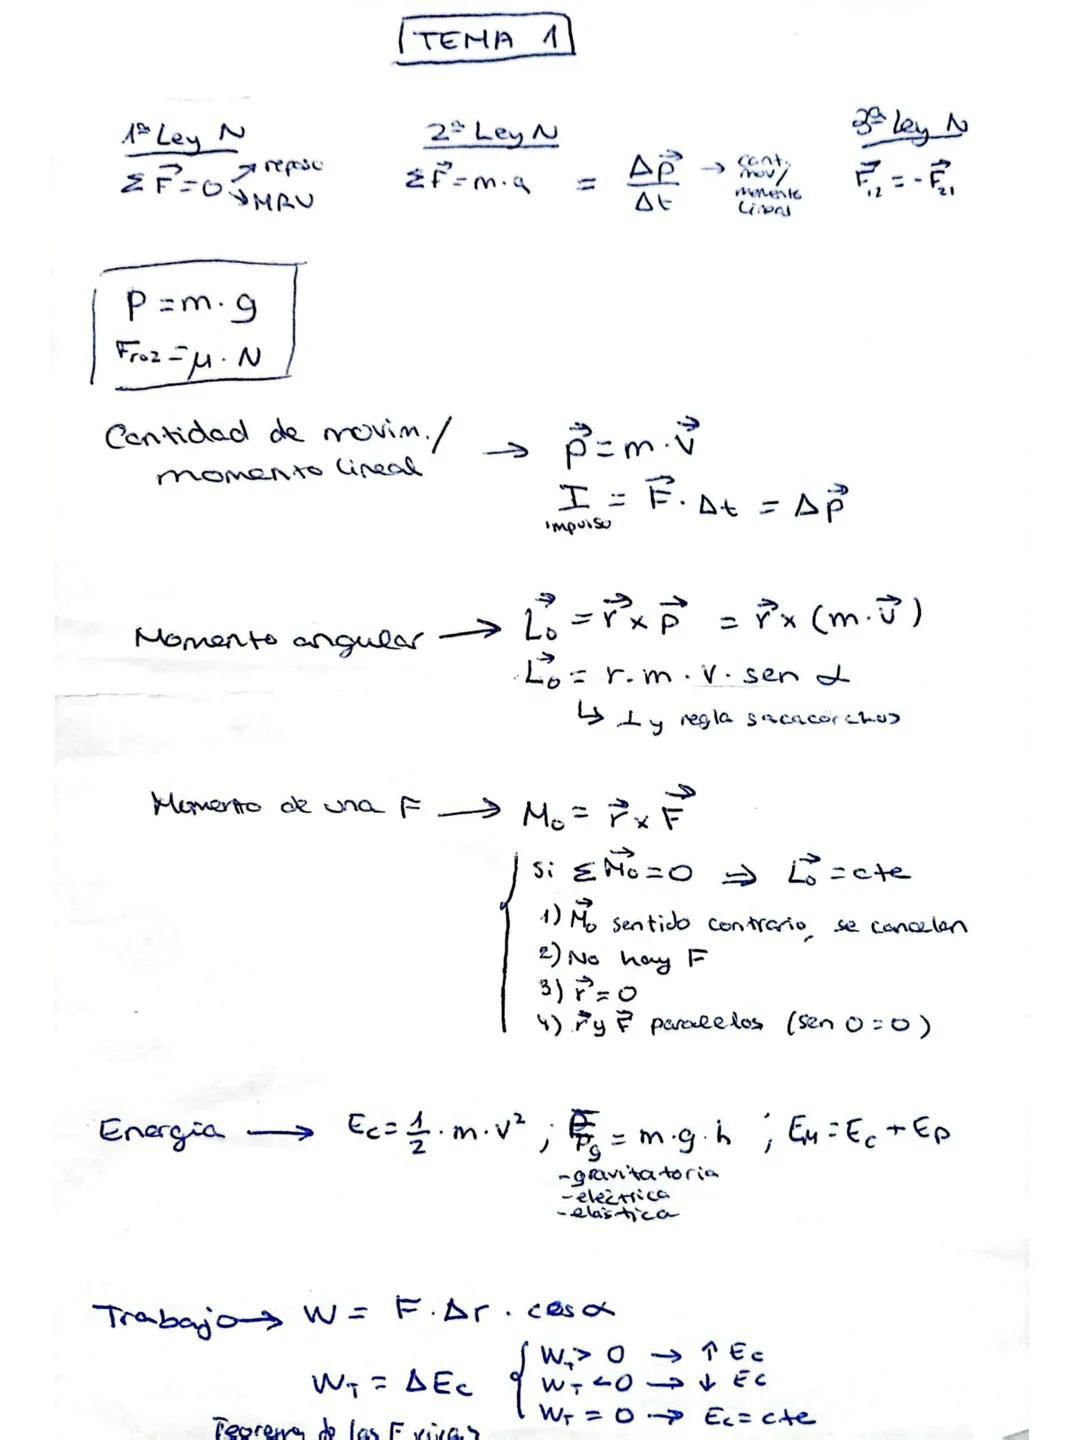 TEMA 1
1ª Ley N
ΣF⃗=0 ↗ reposo
↘ MRU
2ª Ley N
ΣF⃗=m·a = Δp⃗/Δt → cant. mov/ momento lineal
3ª Ley N
F⃗₁₂ = -F⃗₂₁
P = m·g
Froz = μ·N
Cantidad de movim./ → p⃗ = m·v⃗
momento lineal
I = F⃗·Δt = Δp⃗
impulso
Momento angular → L₀⃗ = r⃗ x p⃗ = r⃗ x (m·v⃗)
L₀⃗ = r.m.v.sen α
↳ ⊥ y regla sacacorchos
Momento de una F → M₀ = r⃗ x F⃗
Si ΣM₀⃗=0 ⇒ L₀⃗ = cte
1) M₀⃗ sentido contrario, se cancelan
2) No hay F
3) r⃗=0
4) r⃗ y F⃗ paralelos (sen 0=0)
Energía → Ec = 1/2·m·v² ; Epg = m·g·h ; EM = Ec + Ep
-gravitatoria
-eléctrica
-elástica
Trabajo → W = F·Δr·cosα
WT = ΔEc
WT > 0 → ↑ Ec
WT < 0 → ↓ Ec
WT = 0 → Ec = cte
Teorema de las F vivas